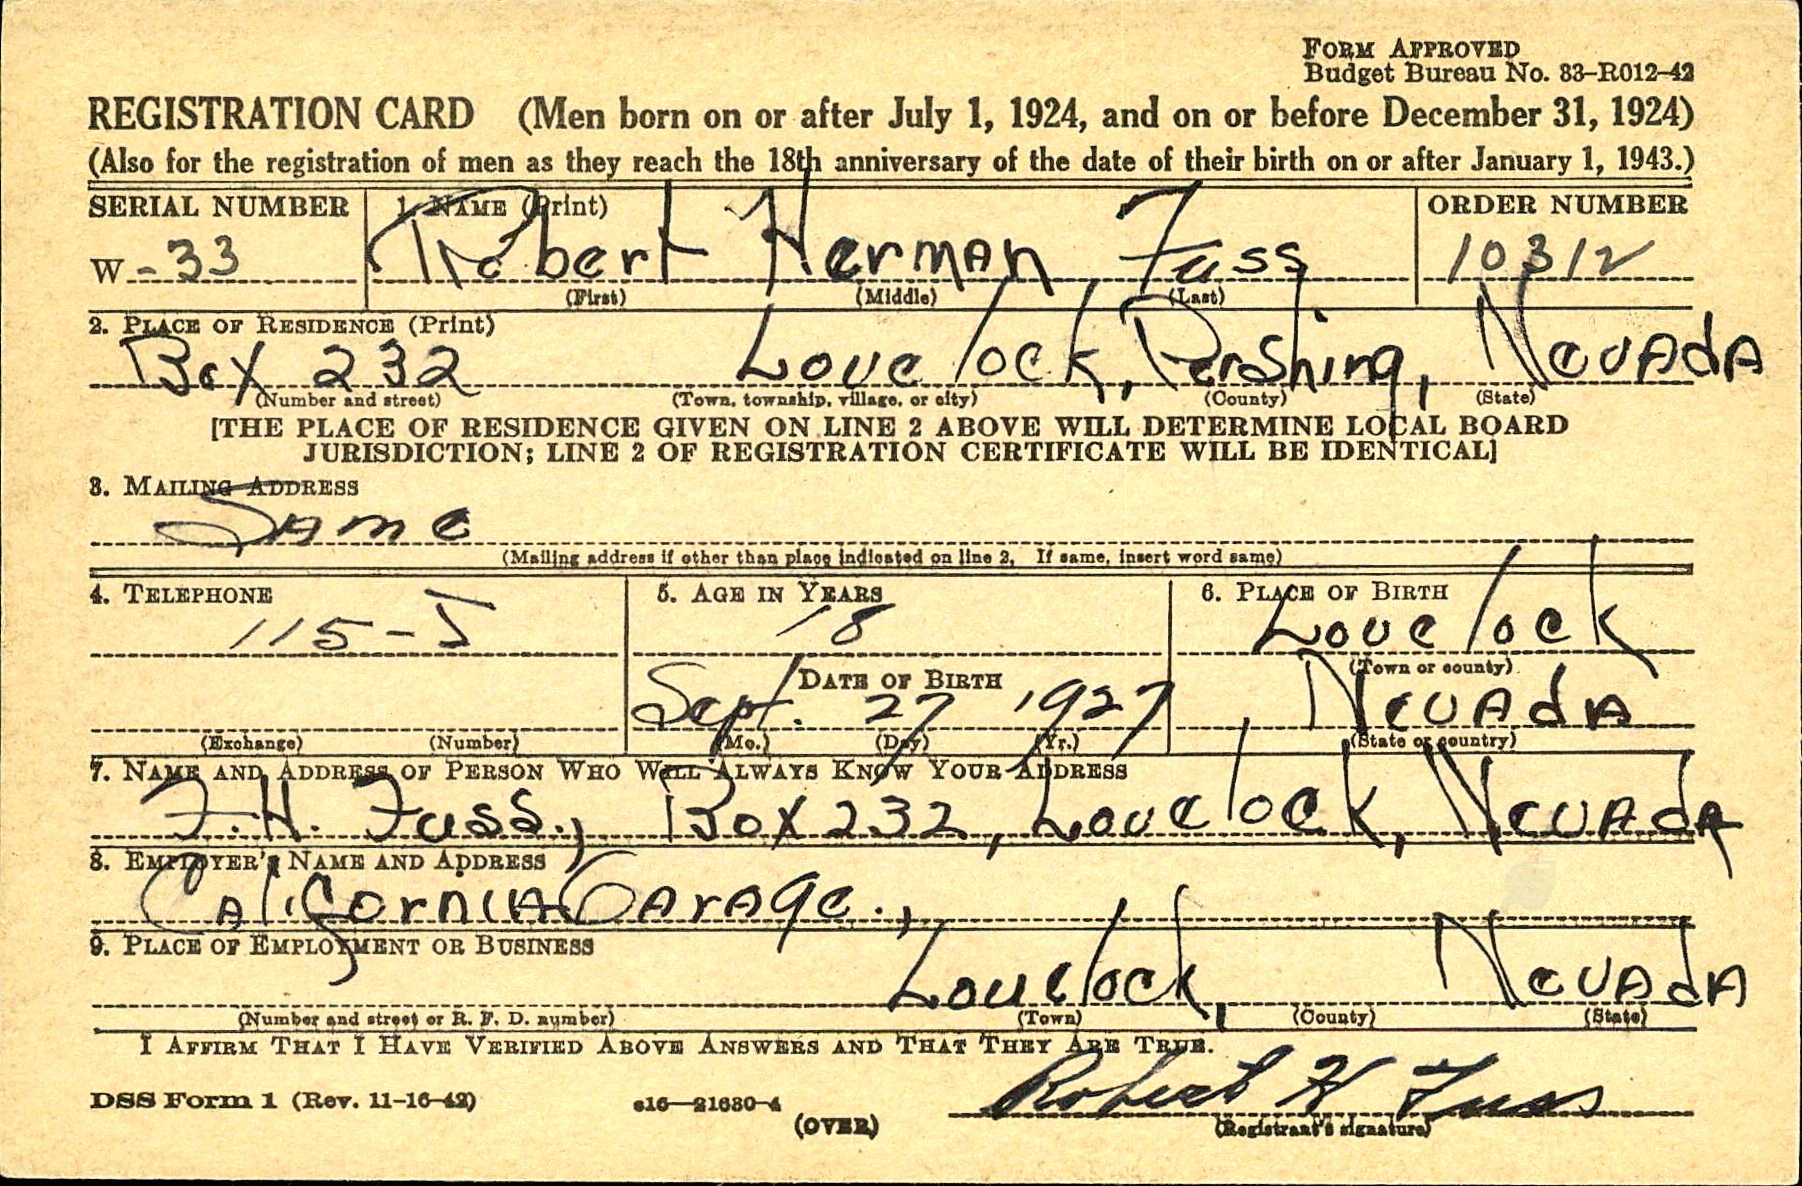 FORM APPROVED
Budget Bureau No. 33–R012–42
REGISTRATION CARD (Men born on or after July 1, 1924, and on or before December 31, 1924)
(Also for the registration of men as they reach the 18th anniversary of the date of their birth on or after January 1, 1943.)
SERIAL NUMBER 1. NAME (Print) ORDER NUMBER
W - 33 Robert Herman Fuss 10312
(First) (Middle) (Last)
2. PLACE OF RESIDENCE (Print)
Box 232 Lovelock, Pershing, Nevada
(Number and street) (Town, township, village, or city) (County) (State)
[THE PLACE OF RESIDENCE GIVEN ON LINE 2 ABOVE WILL DETERMINE LOCAL BOARD
JURISDICTION; LINE 2 OF REGISTRATION CERTIFICATE WILL BE IDENTICAL]
3. MAILING ADDRESS
Same
(Mailing address if other than place indicated on line 2. If same, insert word same)
4. TELEPHONE 5. AGE IN YEARS 6. PLACE OF BIRTH
115-J 18 Lovelock
DATE OF BIRTH (Town or county)
Sept. 27 1927 Nevada
(Exchange) (Number) (Mo.) (Day) (Yr.) (State or country)
7. NAME AND ADDRESS OF PERSON WHO WILL ALWAYS KNOW YOUR ADDRESS
F. H. Fuss., Box 232, Lovelock, Nevada
8. EMPLOYER'S NAME AND ADDRESS
California Garage.,
9. PLACE OF EMPLOYMENT OR BUSINESS
Lovelock, Nevada
(Number and street or R. F. D. number) (Town) (County) (State)
I AFFIRM THAT I HAVE VERIFIED ABOVE ANSWERS AND THAT THEY ARE TRUE.
Robert H Fuss
DSS Form 1 (Rev. 11–16–42) e16—21630-4
(OVER) (Registrant's signature)